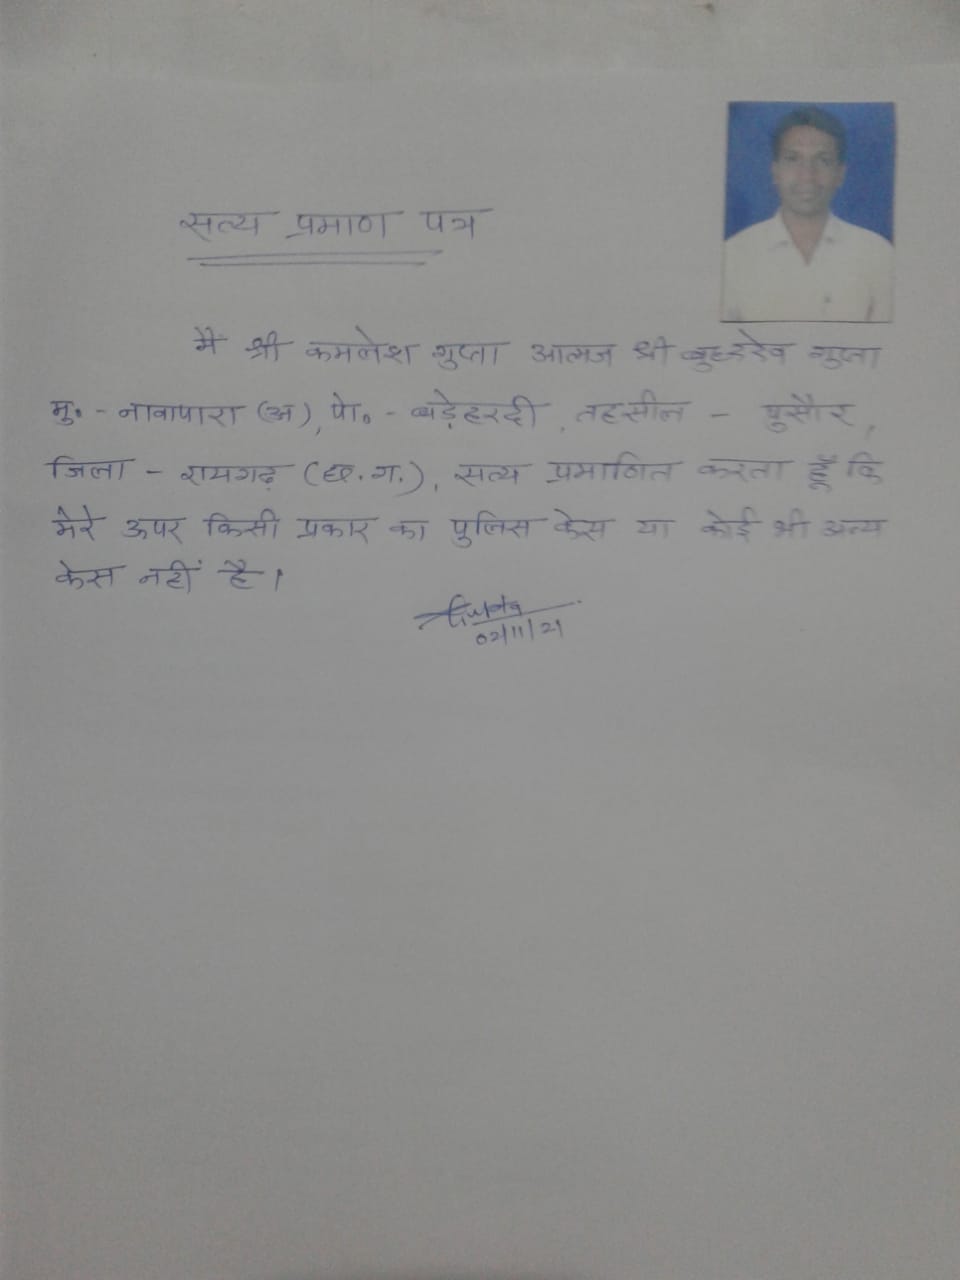 सत्य प्रमाण पत्र
मैं श्री कमलेश गुप्ता आत्मज श्री गुप्ता
मु॰ - नावापारा (अ), पो॰ - बड़ेहरदी, तहसील - पुसौर,
जिला - रायगढ़ (छ.ग.), सत्य प्रमाणित करता हूँ कि
मेरे ऊपर किसी प्रकार का पुलिस केस या कोई भी अन्य
केस नहीं है।
02/11/21